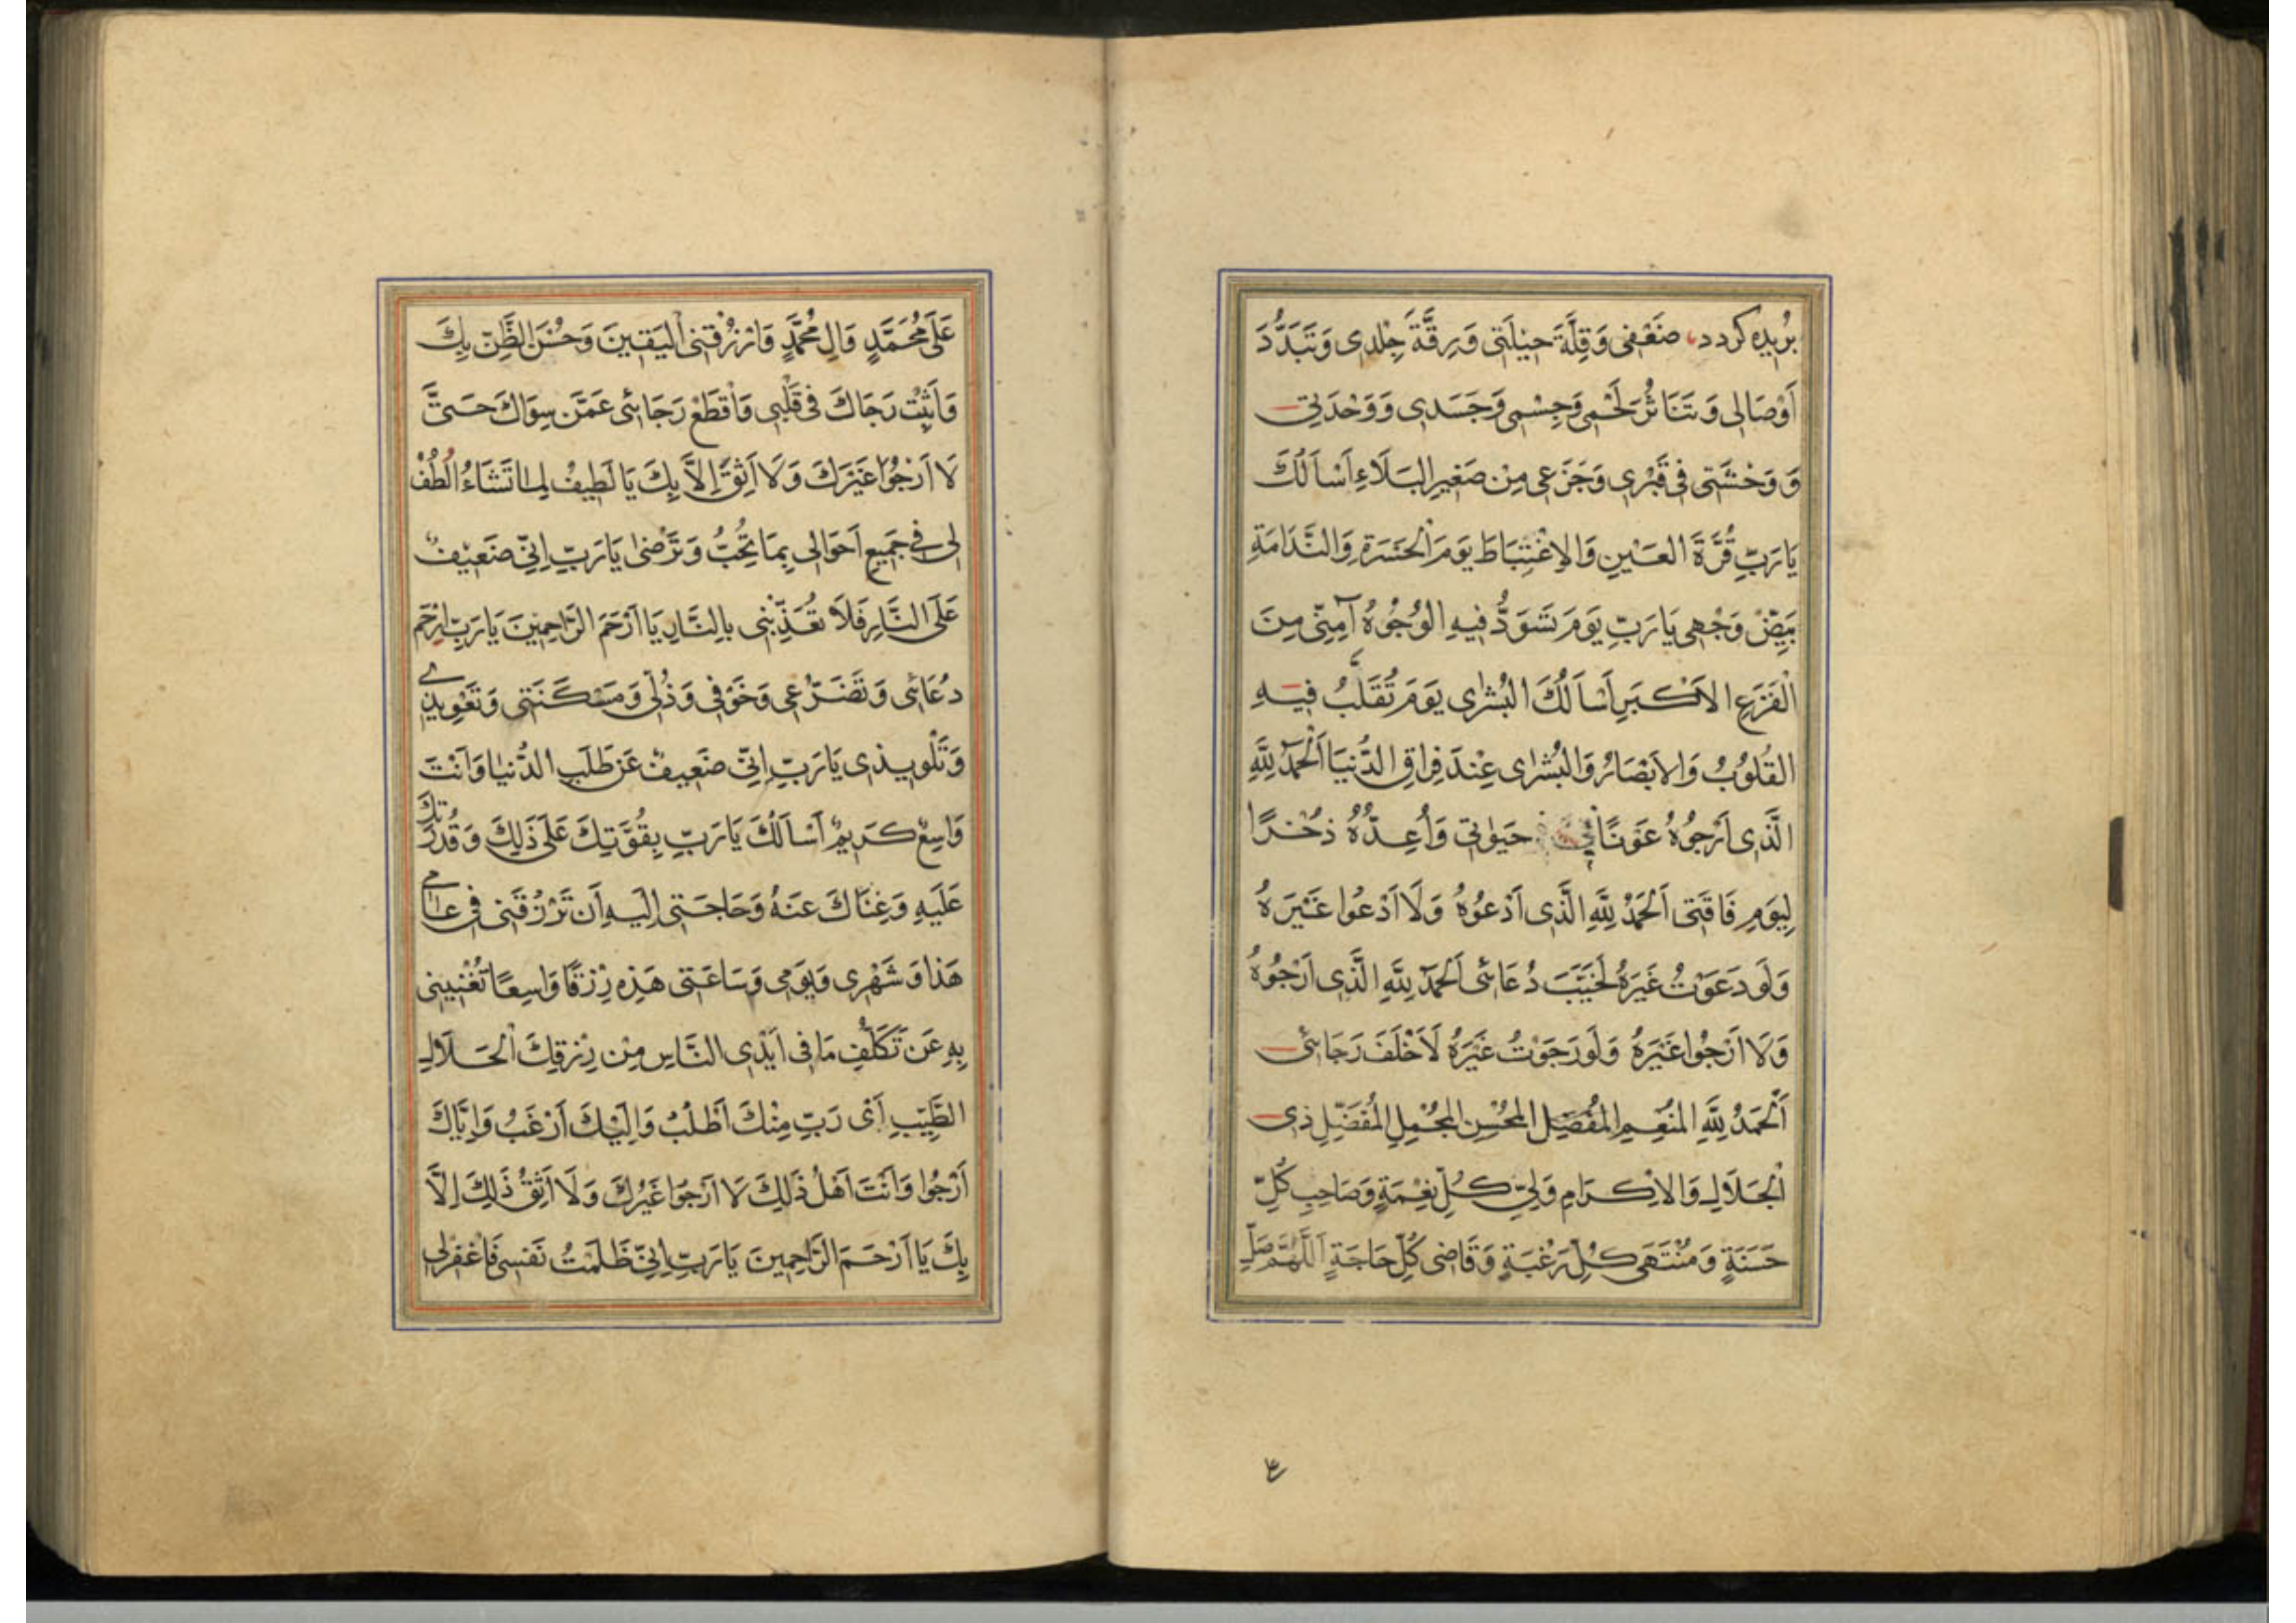 بُریده کردد، ضَعْفی وَقِلَّةَ حیٖلَتی وَرِقَّةَ جِلْدی وَتَبَدُّدَ
اَوْصٰالی وَتَنَاثُرَ لَحْمی وَجِسْمی وَجَسَدی وَوَحْدَتی
وَوَحْشَتی فی قَبْری وَجَزَعی مِنْ صَغیرِ البَلَاءِ اَسْاَلُكَ
یَا رَبِّ قُرَّةَ العَیْنِ وَالاِغْتِبَاطَ یَومَ الْحَسْرَةِ وَالنَّدَامَةِ
بَیِّضْ وَجْهی یَا رَبِّ یَومَ تَسْوَدُّ فیهِ الوُجُوهُ آمِنّی مِنَ
الْفَزَعِ الاَكْبَرِ اَسْاَلُكَ البُشْرٰی یَومَ تُقَلَّبُ فیهِ
القُلوُبُ وَالاَبْصَارُ وَالبُشْرٰی عِنْدَ فِراقِ الدُّنیَا اَلْحَمْدُ لِلّٰهِ
الَّذی اَرْجُوهُ عَوْنًا فی حَیٰوتی وَاُعِدُّهُ ذُخْرًا
لِیَومِ فَاقَتی اَلْحَمْدُ لِلّٰهِ الَّذی اَدْعُوهُ وَلَا اَدْعُوا غَیْرَهُ
وَلَو دَعَوْتُ غَیْرَهُ لَخَیَّبَ دُعَائی اَلْحَمْدُ لِلّٰهِ الَّذی اَرْجُوهُ
وَلَا اَرْجُوا غَیْرَهُ وَلَو رَجَوْتُ غَیْرَهُ لَاَخْلَفَ رَجَائی
اَلْحَمْدُ لِلّٰهِ المُنْعِمِ المُفْضِلِ المُحْسِنِ المُجْمِلِ المُفَضِّلِ ذی
الْجَلَالِ وَالاِكْرَامِ وَلِیِّ كُلِّ نِعْمَةٍ وَصَاحِبِ كُلِّ
حَسَنَةٍ وَمُنْتَهٰی كُلِّ رَغْبَةٍ وَقَاضی كُلِّ حَاجَةٍ اَللّٰهُمَّ صَلِّ
عَلٰی مُحَمَّدٍ وَالِ مُحَمَّدٍ وَارْزُقْنی الْیَقینَ وَحُسْنَ الظَّنِّ بِكَ
وَاَثْبِتْ رَجَاكَ فی قَلْبی وَاقْطَعْ رَجَائی عَمَّنْ سِوَاكَ حَتّٰی
لَا اَرْجُوا غَیْرَكَ وَلَا اَثِقَ اِلَّا بِكَ یَا لَطیفُ لِمٰا تَشَاءُ الْطُفْ
لی فی جَمیعِ اَحْوَالی بِمَا تُحِبُّ وَتَرْضٰی یَا رَبِّ اِنّی ضَعیفٌ
عَلَی النَّارِ فَلَا تُعَذِّبْنی بِالنَّارِ یَا اَرْحَمَ الرَّاحِمینَ یَا رَبِّ ارْحَمْ
دُعَائی وَتَضَرُّعی وَخَوْفی وَذُلّی وَمَسْكَنَتی وَتَعْویذی
وَتَلْویذی یَا رَبِّ اِنّی ضَعیفٌ عَنْ طَلَبِ الدُّنیٰا وَاَنْتَ
وَاسِعٌ كَریمٌ اَسْاَلُكَ یَا رَبِّ بِقُوَّتِكَ عَلٰی ذٰلِكَ وَقُدْرَتِكَ
عَلَیهِ وَغِنَاكَ عَنْهُ وَحَاجَتی اِلَیهِ اَنْ تَرْزُقَنی فی عَامی
هَذا وَشَهْری وَیَومی وَسَاعَتی هَذِهِ رِزْقًا وَاسِعًا تُغْنینی
بِهِ عَنْ تَكَلُّفِ مَا فی اَیْدی النَّاسِ مِنْ رِزْقِكَ الْحَلَالِ
الطَّیِّبِ اَیْ رَبِّ مِنْكَ اَطْلُبُ وَاِلَیْكَ اَرْغَبُ وَاِیَّاكَ
اَرْجُوا وَاَنْتَ اَهْلُ ذٰلِكَ لَا اَرْجُوا غَیْرَكَ وَلَا اَثِقُ ذٰلِكَ اِلَّا
بِكَ یَا اَرْحَمَ الرَّاحِمینَ یَا رَبِّ اِنّی ظَلَمْتُ نَفْسی فَاغْفِرْلی